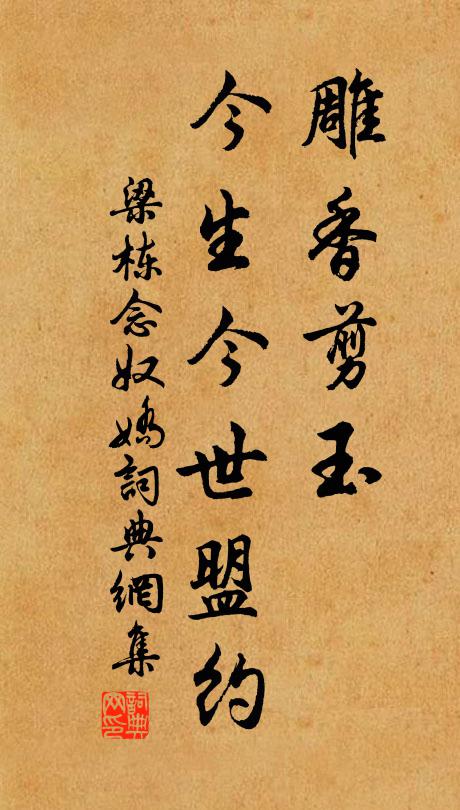 雕香剪玉
今生今世盟约
梁栋念奴嬌詞典網集
詞典网印